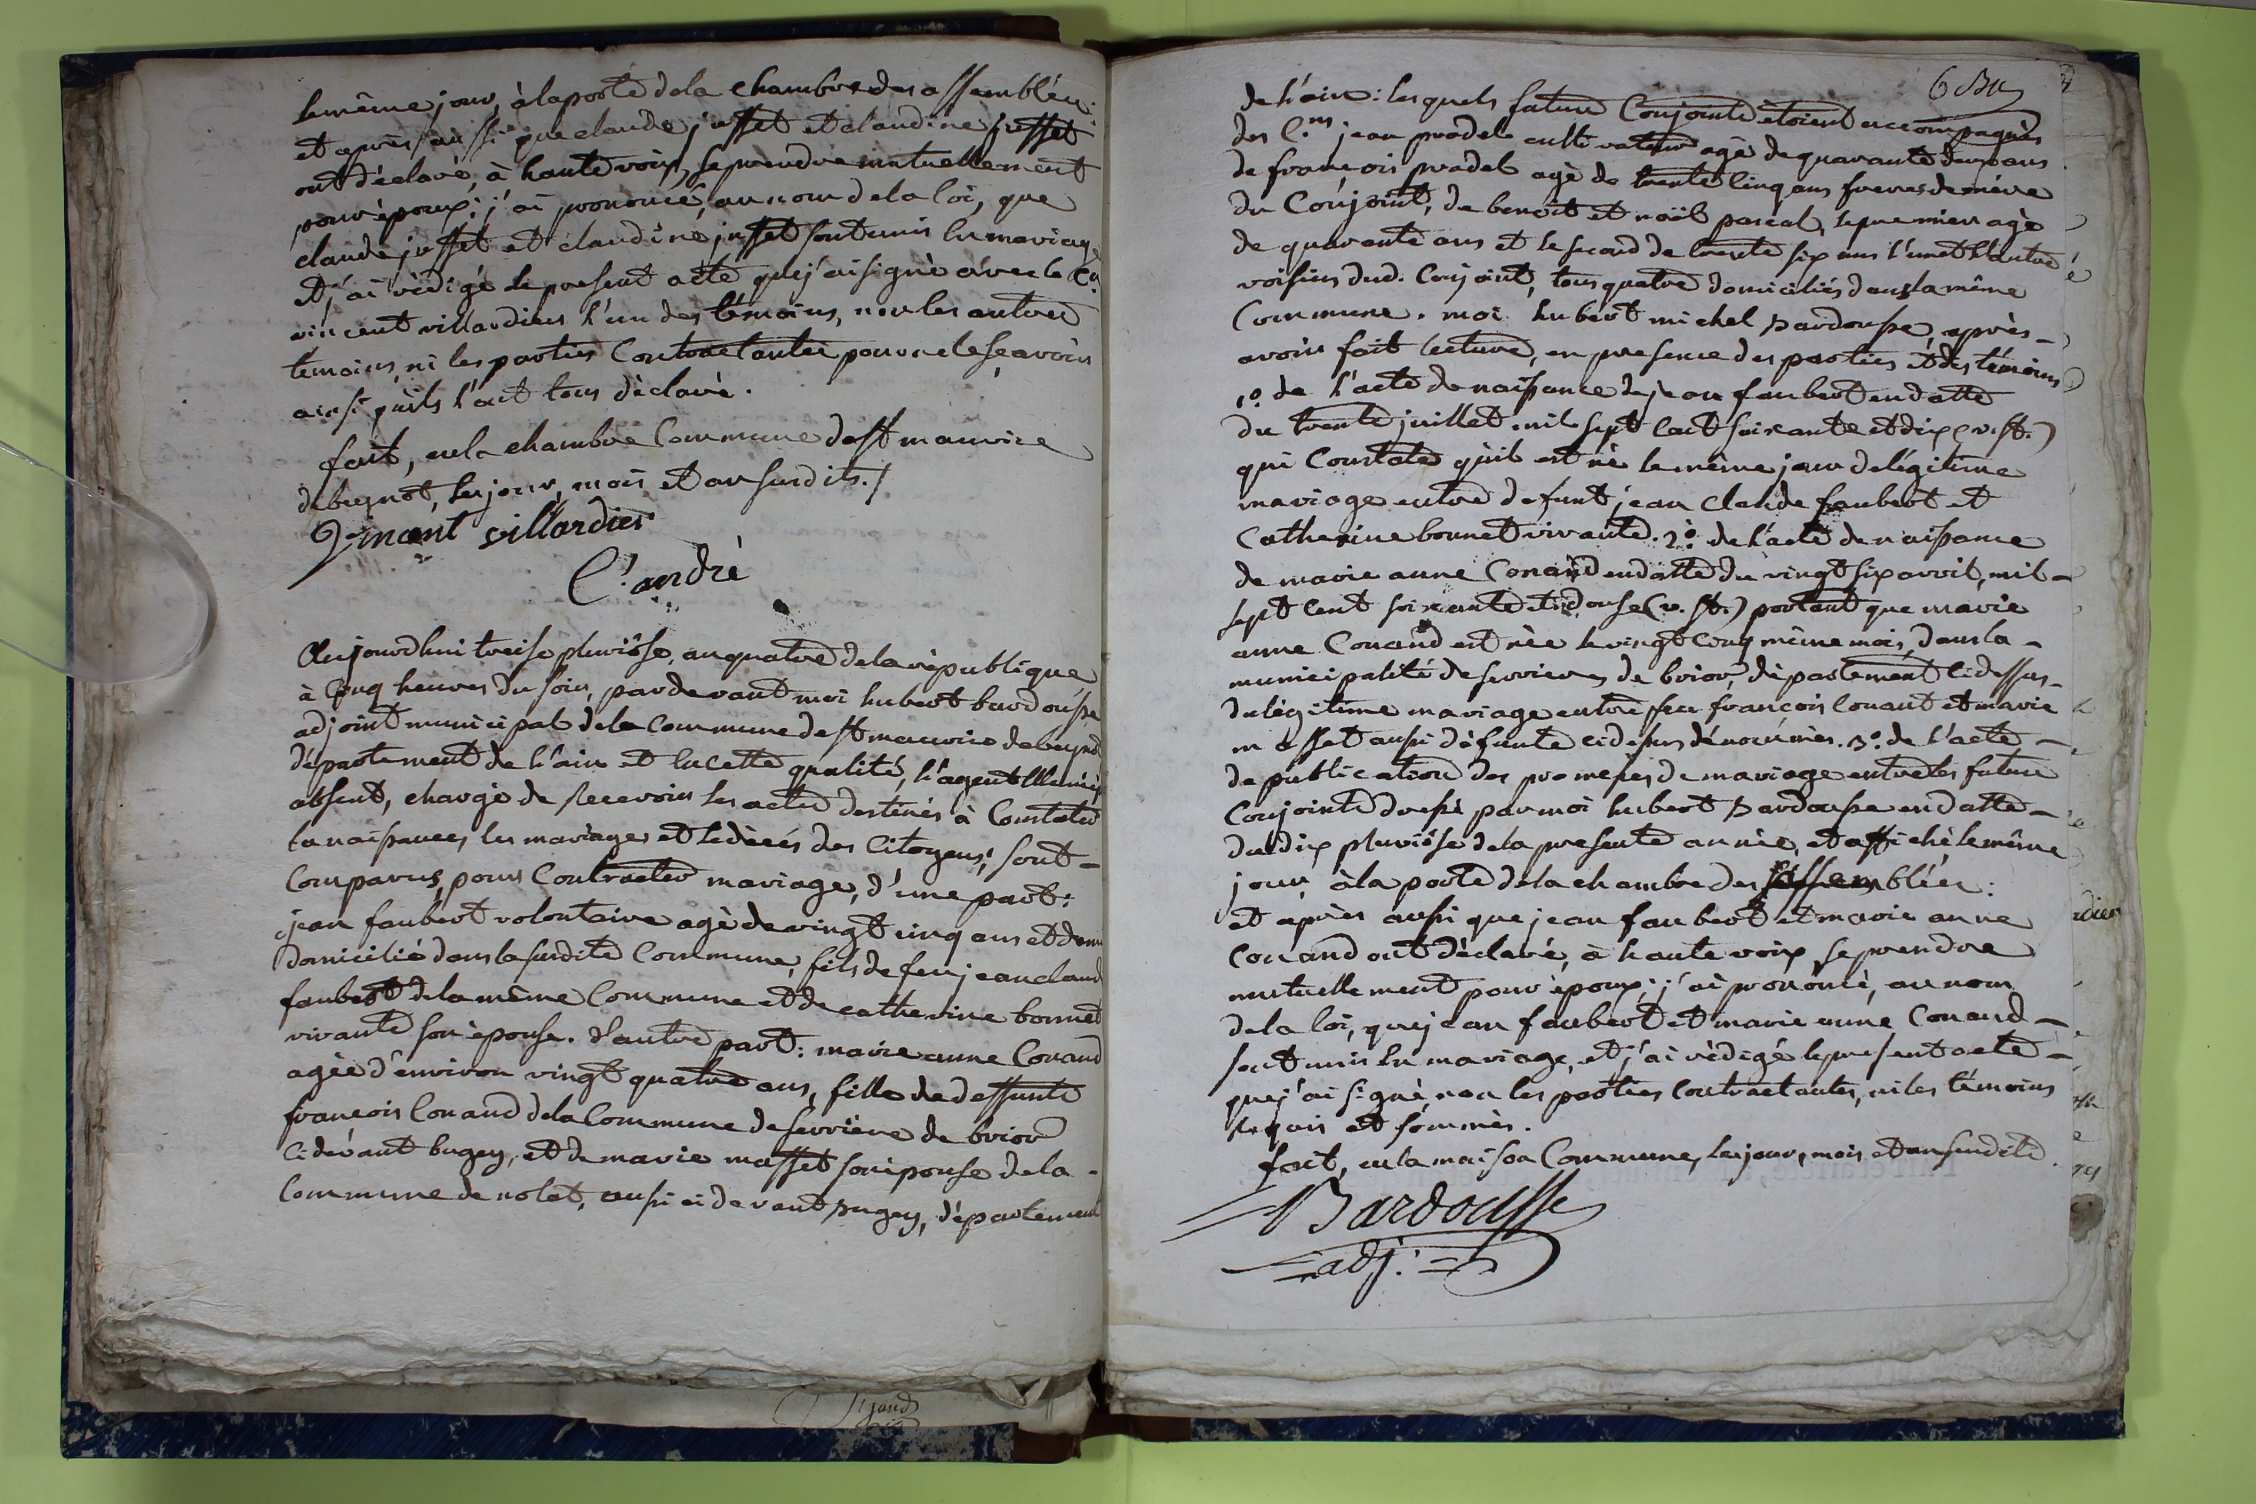 le même jour, à la porte de la chambre des assemblées:
et après aussi que claude jusset et claudine jusset
ont déclaré, à haute voix, se prendre mutuellement
pour époux; j'ai prononcé, au nom de la loi, que
claude jusset et claudine jusset sont unis en mariage
et j'ai rédigé le present acte que j'ai signé avec le C.n
vincent villardier l'un des témoins, non les autres
témoins, ni les parties Contractantes pour ne le sçavoir
ainsi qu'ils l'ont tous déclaré.
fait, en la chambre Commune de st maurice
de beynost, les jour, mois et an susdits./
Vincent villardier
C. andré
Aujourdhui treise pluviôse, an quatre de la république
à Cinq heures du soir, pardevant moi hubert bardousse
adjoint municipal de la Commune de st maurice de beynost
département de l'ain et en cette qualité, l'agent
absent, chargé de recevoir les actes destinés à Constater
la naissances, les mariages et le décès des Citoyens; sont
Comparus, pour Contracter mariage, d'une part:
jean faubert volontaire agé de vingt cinq ans et demi
domicilié dans la susdite Commune, fils de feu jean claude
faubert de la même Commune et de catherine bonnet
vivante son épouse. d'autre part: marie anne Conand
agée d'environ vingt quatre ans, fille de deffunts
françois Conand de la Commune de serrière de briord
cidevant bugey, et de marie masset son épouse de la
Commune de nolet, aussi cidevant Bugey, département
6 Bu
de l'ain: les quels futurs Conjoints étoient accompagnés
des C.ns jean pradel cultivateur agé de quarante deux ans
de françois pradel agé de trente Cinq ans freres de mère
du Conjoint, de benoît et noël pascal, le premier agé
de quarante ans et le second de trente six ans l'un et l'autre
voisins dud. Conjoint, tous quatre domiciliés dans la même
Commune. moi hubert michel Bardousse, après
avoir fait lecture, en presence des parties et des témoins
1.º de l'acte de naissance de jean faubert en datte
du trente juillet mil sept cent soixante et dix (v. st.)
qui Constate qu'il est né le même jour de légitime
mariage entre defunt jean Claude faubert et
Catherine bonnet vivante. 2.º de l'acte de naissance
de marie anne Conand en datte du vingt six avril, mil
sept cent soixante et douse (v. st.) portant que marie
anne Conand est née le vingt cinq même mois, dans la
municipalité de serrieres de briord, département ci dessus
du légitime mariage entre feu françois Conant et marie
masset aussi défunte ci dessus dénommés. 3.º de l'acte
de publication des promesses de mariage entre les futurs
Conjoints dressé par moi hubert Bardousse en datte
du dix pluviôse de la presente année, et affiché le même
jour à la porte de la chambre des assemblées:
et après aussi que jean faubert et marie anne
Conand ont déclaré, à haute voix, se prendre
mutuellement pour époux; j'ai prononcé, au nom
de la loi, que jean faubert et marie anne Conand
sont unis en mariage, et j'ai rédigé le present acte
que j'ai signé, non les parties contractantes, ni les témoins
requis et sommés.
fait, en la maison Commune, les jour, mois et an susdits.
Bardousse
adj.